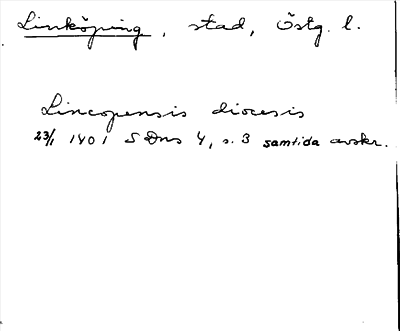 Linköping, stad, Östg. l.
Lincopensis diocesis
23/1 1401 SDns 4, s. 3 samtida avskr.